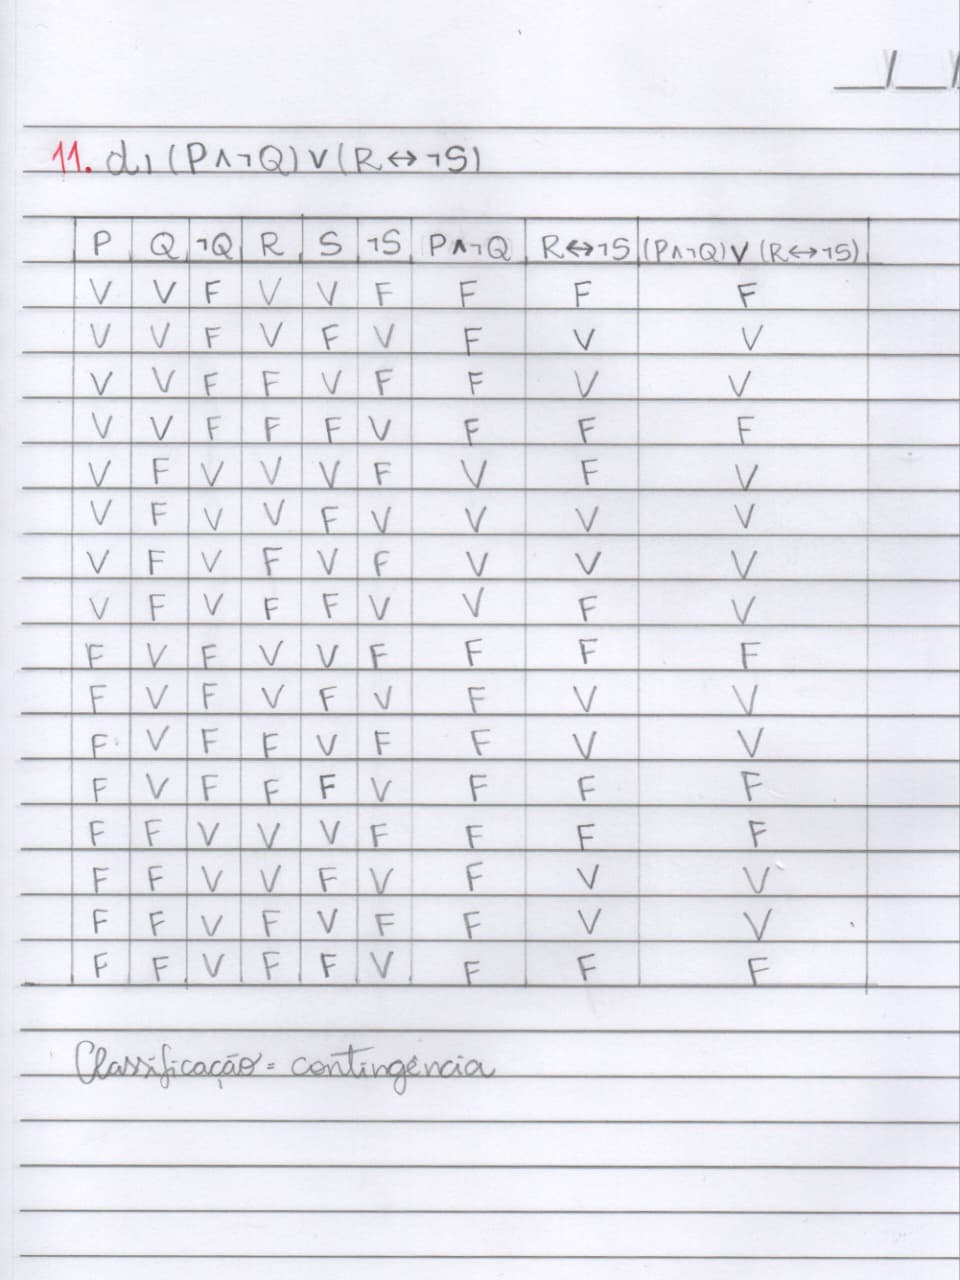 __/__/
11. d) (P∧¬Q)∨(R↔¬S)
P Q ¬Q R S ¬S P∧¬Q R↔¬S (P∧¬Q)∨(R↔¬S)
V V F V V F F F F
V V F V F V F V V
V V F F V F F V V
V V F F F V F F F
V F V V V F V F V
V F V V F V V V V
V F V F V F V V V
V F V F F V V F V
F V F V V F F F F
F V F V F V F V V
F V F F V F F V V
F V F F F V F F F
F F V V V F F F F
F F V V F V F V V
F F V F V F F V V
F F V F F V F F F
Classificação = contingência